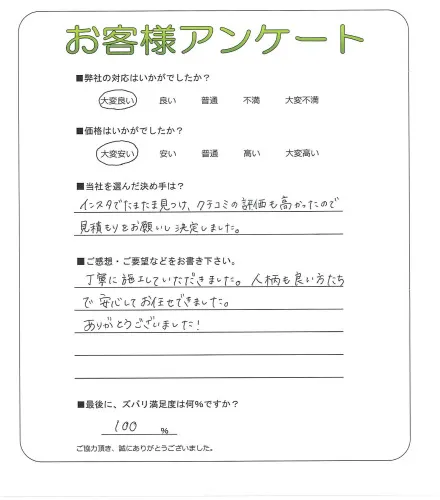 お客様アンケート
■弊社の対応はいかがでしたか？
大変良い 良い 普通 不満 大変不満
■価格はいかがでしたか？
大変安い 安い 普通 高い 大変高い
■当社を選んだ決め手は？
インスタでたまたま見つけ、クチコミの評価も高かったので
見積もりをお願いし決定しました。
■ご感想・ご要望などをお書き下さい。
丁寧に施工していただきました。人柄も良い方たち
で安心してお任せできました。
ありがとうございました！
■最後に、ズバリ満足度は何%ですか？
100 %
ご協力頂き、誠にありがとうございました。